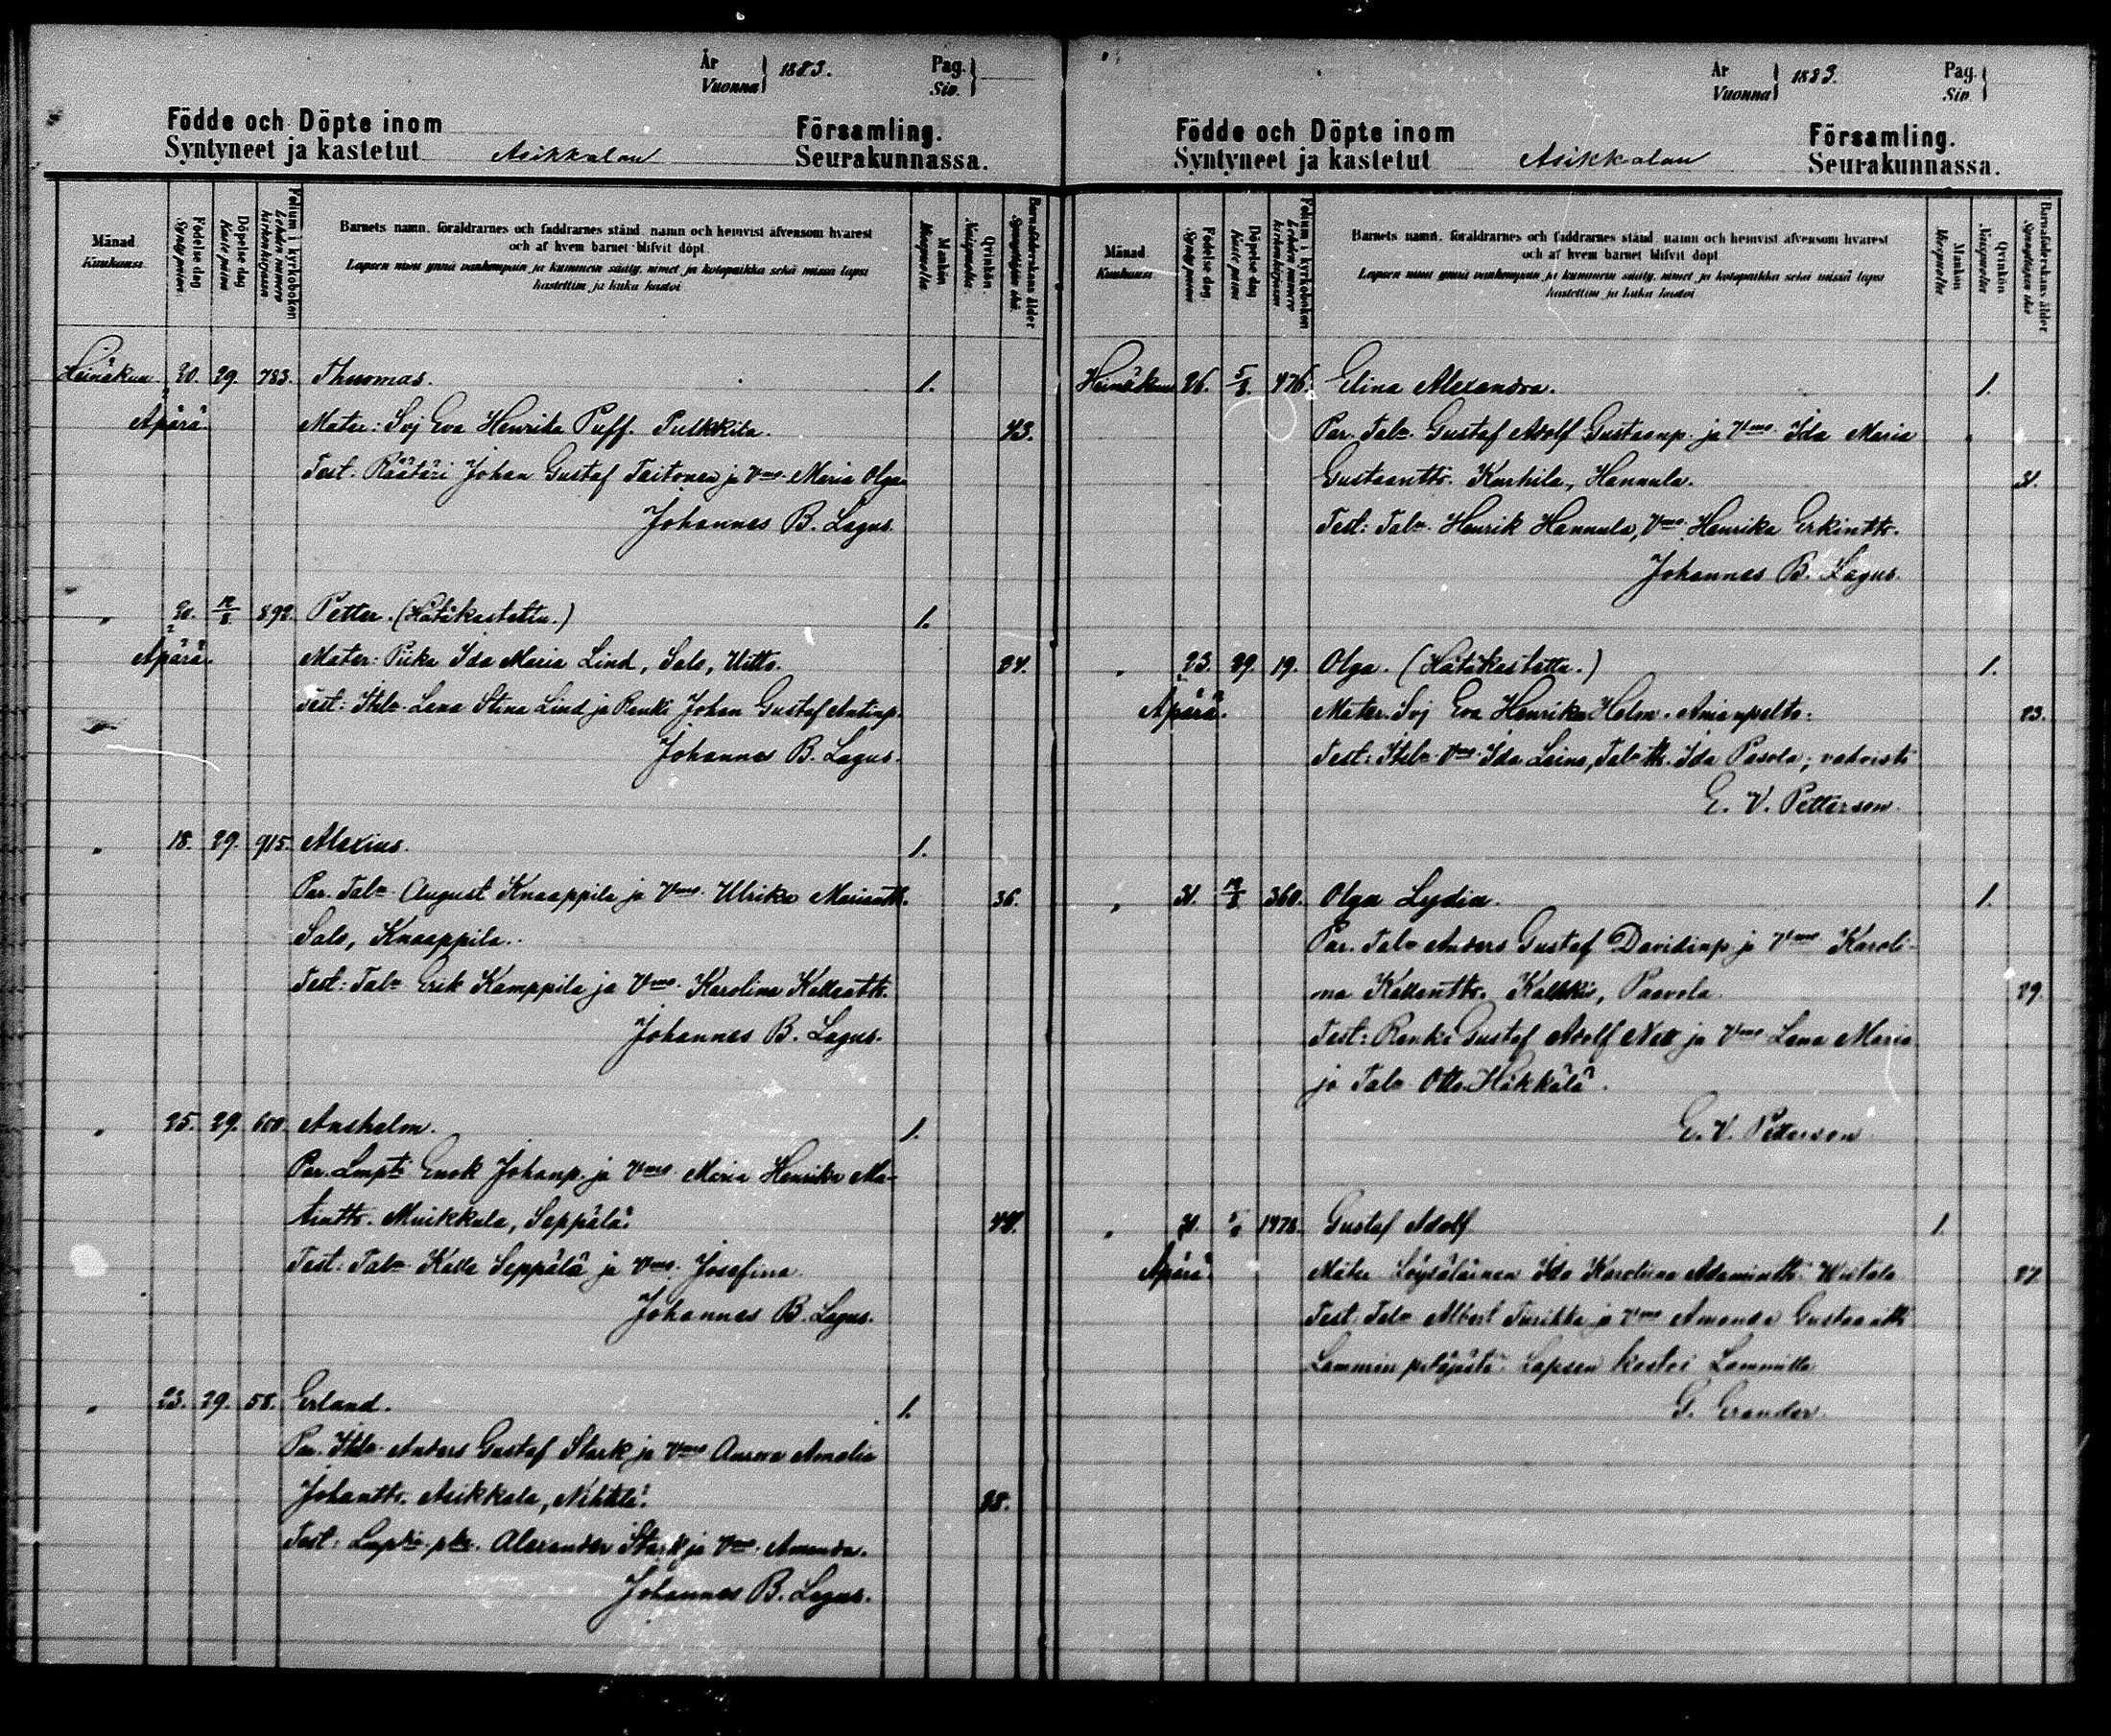 År
Vuonna } 1883.
Pag.
Siv. }
Födde och Döpte inom
Syntyneet ja kastetut Asikkalan
Församling.
Seurakunnassa.
Månad
Kuukausi
Födelse dag
Syntymäpäivä
Döpelse dag
Kaste päivä
Folium i kyrkoboken
Lehden numero kirkonkirjassa
Barnets namn, föräldrarnes och faddrarnes stånd, namn och hemvist äfvensom hvarest
och af hvem barnet blifvit döpt
Lapsen nimi ynnä vanhempain ja kummein sääty, nimet ja kotopaikka sekä missä lapsi
kastettiin ja kuka kastoi
Mankön
Miespuolia
Qvinkön
Naispuolia
Barnaföderskans ålder
Synnyttäjän ikä
Heinäkuu 20. 29. 783. Thuomas. 1.
Apärä Mater: Svj Eva Henrika Puff. Pulkkila. 43.
Test. Räätäri Johan Gustaf Taitonen ja Vmo Maria Olga
Johannes B. Lagus.
" 20. 12/8 892. Petter. (Hätäkastettu.) 1.
Apärä. Mater: Piika Ida Maria Lind, Salo, Uitto. 24.
Test: Itsln Lena Stina Lind ja Renki Johan Gustaf Antinp.
Johannes B. Lagus.
" 18. 29. 915. Alexius. 1.
Par. Taln August Knaappila ja Vmo Ulrika Mariantt. 36.
Salo, Knaappila.
Test: Taln Erik Kamppila ja Vmo Karolina Kallentt.
Johannes B. Lagus.
" 25. 29. 600. Anshelm. 1.
Par. Lmpti Enok Johanp. ja Vmo Maria Henrika Ma-
tintt. Muikkala, Seppälä. 44.
Test: Taln Kalle Seppälä ja Vmo Josefina.
Johannes B. Lagus.
" 23. 29. 58. Erland. 1.
Par. Itsln Anders Gustaf Stark ja Vmo Aurora Amalia
Johantt. Asikkala, 28.
Test: Alexander Stark ja Vmo Amanda.
Johannes B. Lagus.
År
Vuonna } 1883.
Pag.
Siv. }
Födde och Döpte inom
Syntyneet ja kastetut Asikkalan
Församling.
Seurakunnassa.
Månad
Kuukausi
Födelse dag
Syntymäpäivä
Döpelse dag
Kaste päivä
Folium i kyrkoboken
Lehden numero kirkonkirjassa
Barnets namn, föräldrarnes och faddrarnes stånd, namn och hemvist äfvensom hvarest
och af hvem barnet blifvit döpt
Lapsen nimi ynnä vanhempain ja kummein sääty, nimet ja kotopaikka sekä missä lapsi
kastettiin ja kuka kastoi
Mankön
Miespuolia
Qvinkön
Naispuolia
Barnaföderskans ålder
Synnyttäjän ikä
Heinäkuu 26. 5/8 476. Elina Alexandra. 1.
Par. Taln Gustaf Adolf Gustaanp. ja Vmo Ida Maria
Gustaantt. Kurhila, Hannula. 31.
Test: Taln Henrik Hannula, Vmo Henrika Erkintt.
Johannes B. Lagus.
" 23. 29. 19. Olga. (Hätäkastettu.) 1.
Apärä. Mater. Svj Eva Henrika Helm. Anianpelto. 23.
Test: Itsln Vmo Ida Laina, Taln tt. Ida Pasola; vahvisti
E. V. Petterson.
" 31. 12/8 360. Olga Lydia. 1.
Par. Taln Anders Gustaf Davidinp. ja Vmo Karoli-
na Kallentt. Kalkkis, Paavola. 29.
Test: Renki Gustaf Adolf ja Vmo Lena Maria
ja Taln Otto Häkkälä.
E. V. Petterson
" 31. 5/8 1478. Gustaf Adolf 1.
Apärä. Mater Löysäläinen Ida Karoliina Adamintt. 27
Test Taln Albert ja Vmo Amanda Gustaantt
Lammin pitäjästä. Lapsen kastoi Lammilla
G. Grander.